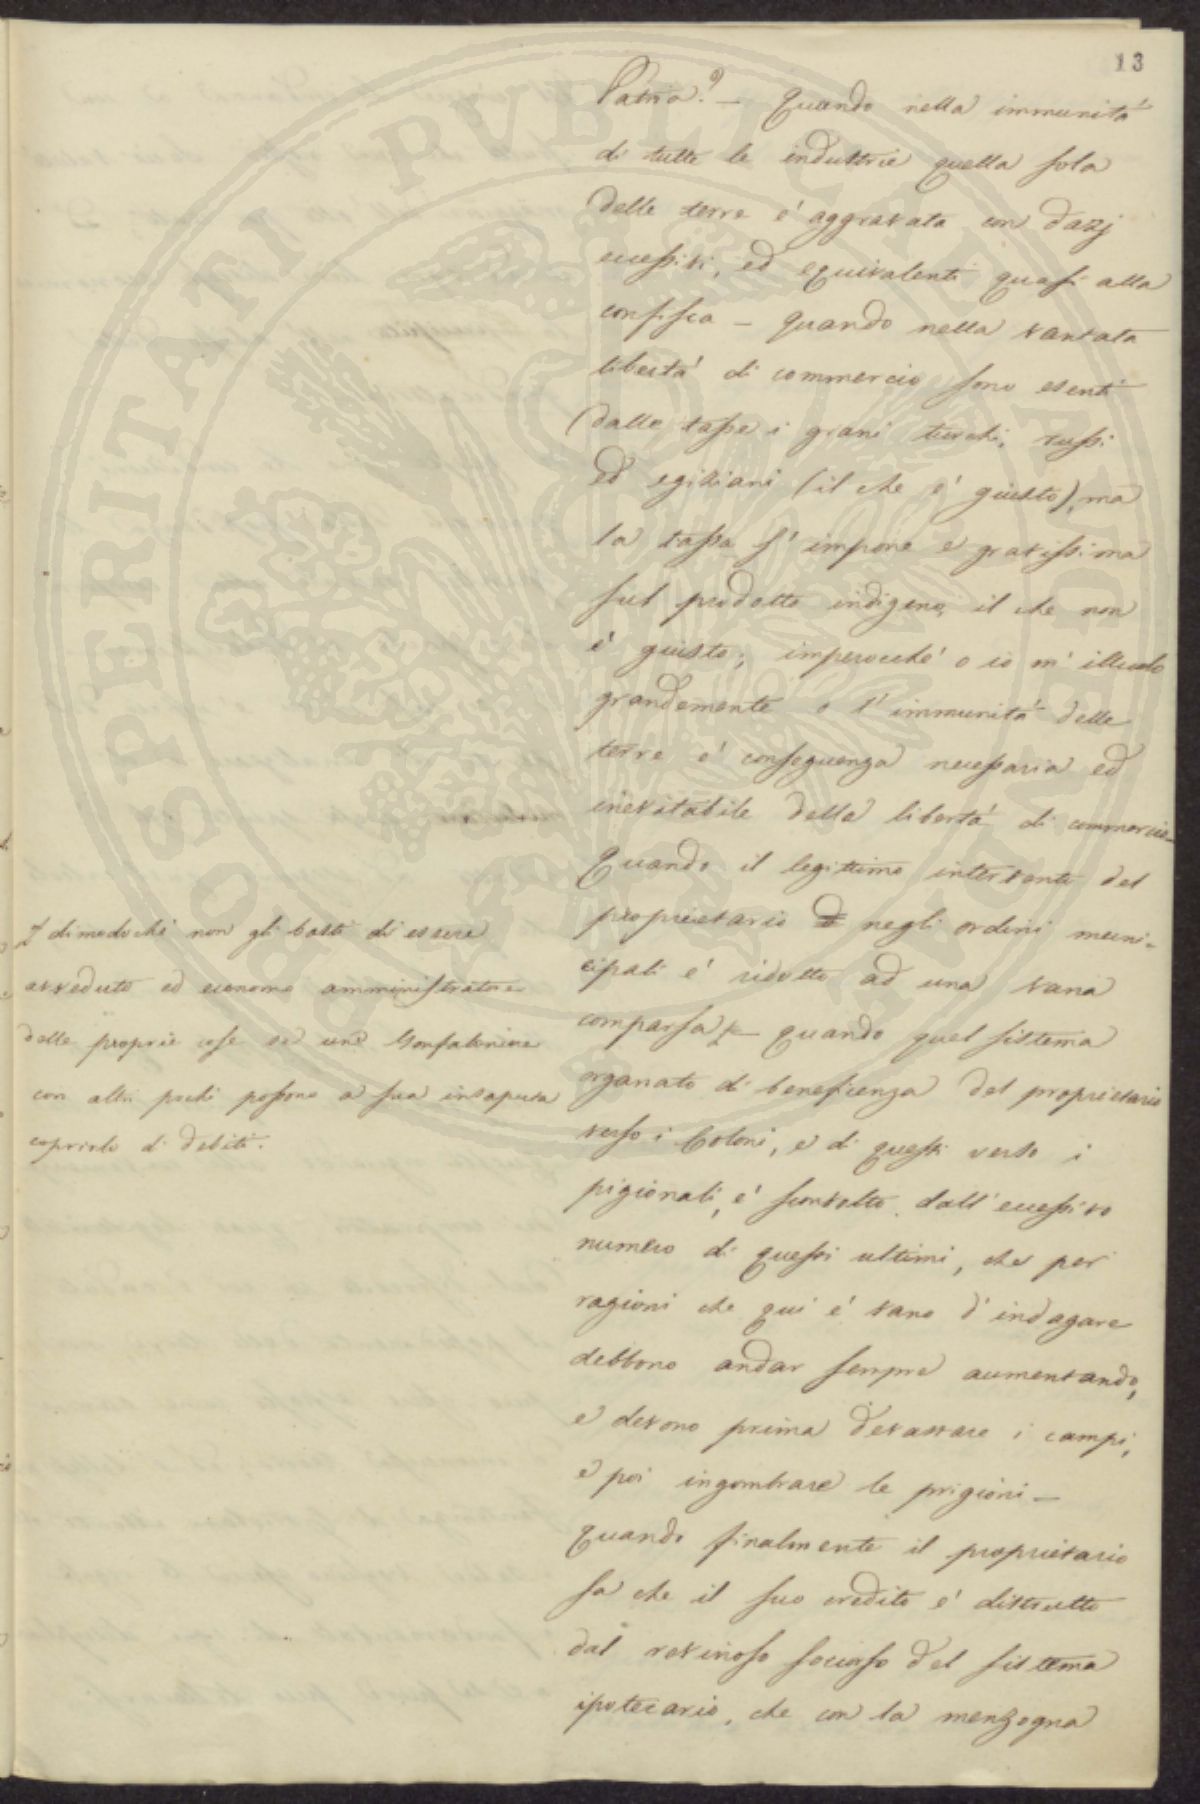 13
Patria? — Quando nella immunità
di tutte le industrie quella sola
delle terre è aggravata con dazj
eccessivi, ed equivalenti quasi alla
confisca — quando nella vantata
libertà di commercio sono esenti
dalle tasse i grani turchi, russi
ed egiziani (il che è giusto), ma
la tassa s'impone e gravissima
sul prodotto indigeno, il che non
è giusto; imperocchè o io m'illudo
grandemente o l'immunità delle
terre è conseguenza necessaria ed
inevitabile della libertà di commercio —
Quando il legittimo intervento del
proprietario negli ordini muni-
cipali è ridotto ad una vana
comparsa — quando quel sistema
organato di beneficenza del proprietario
verso i Coloni, e di questi verso i
pigionali, è sconvolto dall'eccessivo
numero di questi ultimi, che per
ragioni che qui è vano d'indagare
debbono andar sempre aumentando,
e devono prima devastare i campi,
e poi ingombrare le prigioni —
quando finalmente il proprietario
sa che il suo credito è distrutto
dal rovinoso soccorso del sistema
ipotecario, che con la menzogna
dimodochè non gli basti di essere
avveduto ed economo amministratore
delle proprie cose se un Gonfaloniere
con altri pochi possono a sua insaputa
coprirlo di debiti.
PROSPERITATI PVBLICAE AVGENDAE